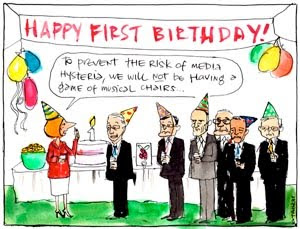 HAPPY FIRST BIRTHDAY!
TO PREVENT THE RISK OF MEDIA
HYSTERIA, WE WILL NOT BE HAVING A
GAME OF MUSICAL CHAIRS...
1